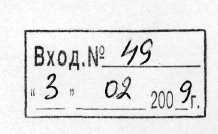 Вход.№ 49
"3" 02 2009г.